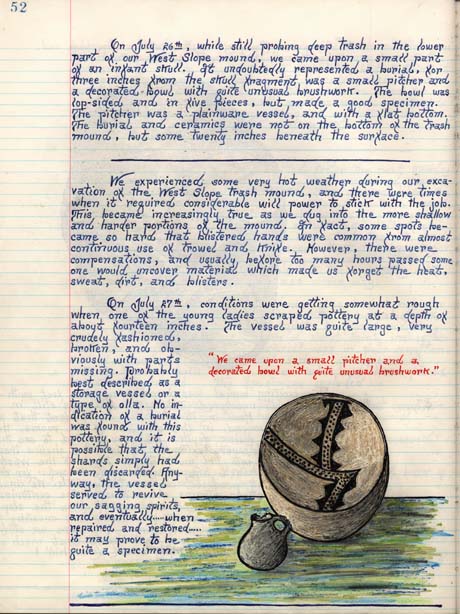 52
On July 26th, while still probing deep trash in the lower
part of our West Slope mound, we came upon a small part
of an infant skull. It undoubtedly represented a burial, for
three inches from the skull fragment was a small pitcher and
a decorated bowl with quite unusual brushwork. The bowl was
lop-sided, and in five pieces, but made a good specimen.
The pitcher was a plainware vessel, and with a flat bottom.
The burial and ceramics were not on the bottom of the trash
mound, but some twenty inches beneath the surface.
We experienced some very hot weather during our exca-
vation of the West Slope trash mound, and there were times
when it required considerable will power to stick with the job.
This became increasingly true as we dug into the more shallow
and harder portions of the mound. In fact, some spots be-
came so hard that blistered hands were common from almost
continuous use of trowel and knife. However, there were
compensations, and usually, before too many hours passed some
one would uncover material which made us forget the heat,
sweat, dirt, and blisters.
On July 27th, conditions were getting somewhat rough
when one of the young ladies scraped pottery at a depth of
about fourteen inches. The vessel was quite large, very
crudely fashioned,
broken, and ob-
viously with parts
missing. Probably
best described as a
storage vessel or a
type of olla. No in-
dication of a burial
was found with this
pottery, and it is
possible that the
shards simply had
been discarded. Any-
way, the vessel
served to revive
our sagging spirits,
and eventually.....when
repaired and restored.....
it may prove to be
quite a specimen.
"We came upon a small pitcher and a
decorated bowl with quite unusual brushwork."